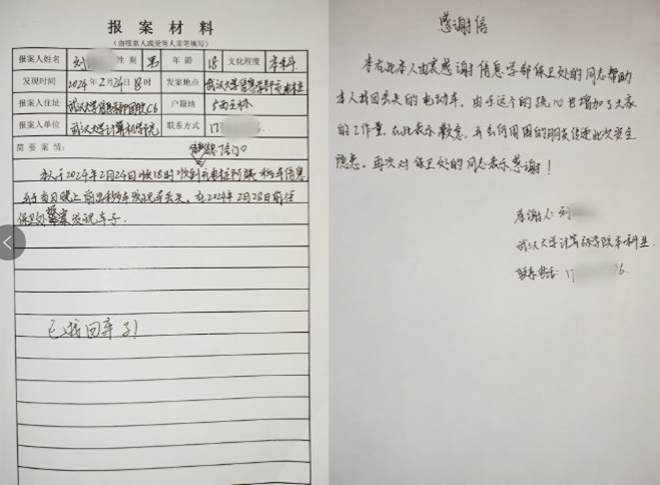 报案材料
（由报案人或受害人亲笔填写）
报案人姓名 刘 性别 男 年龄 18 文化程度 本科
发现时间 2024年2月24日18时 发案地点 武汉大学信息学部
报案人住址 武汉大学信息学部 C6 户籍地
报案人单位 武汉大学计算机学院 联系方式 17
简要案情：
本人于2024年2月24日晚18时收到 移车信息
于当日晚上前去移车发现车丢失，在2024年2月28日前往
保卫处 发现车子
已找回车子！
感谢信
本人由衷感谢信息学部保卫处的同志帮助
本人找回丢失的电动车，由于这个的疏忽增加了大家
的工作量，在此表示歉意，
隐患，再次对保卫处的同志表示感谢！
感谢人：刘
武汉大学计算机学院本科生
联系电话：17 6.